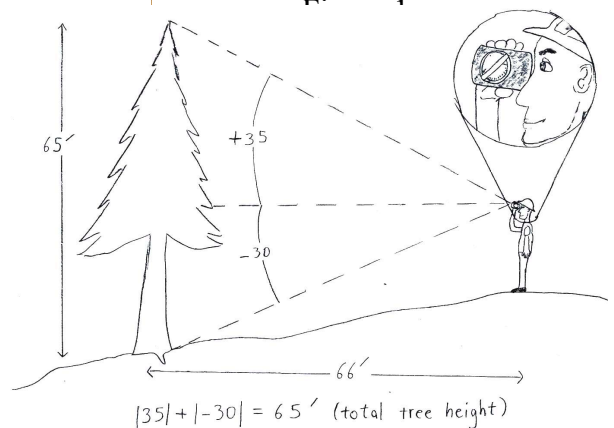 65′
+35
-30
66′
|35| + |-30| = 65′ (total tree height)